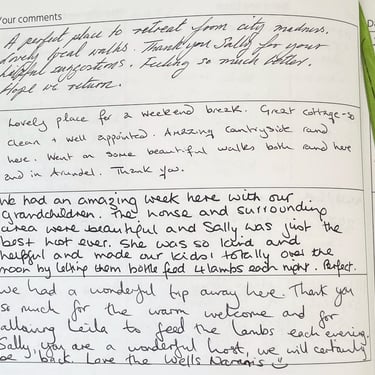 Your comments
Da
A perfect place to retreat from city madness.
Lovely local walks. Thank you Sally for your
helpful suggestions. Feeling so much better.
Hope we return.
Lovely place for a weekend break. Great cottage - so
clean + well appointed. Amazing countryside round
here. Went on some beautiful walks both round here
and in Arundel. Thank you.
We had an amazing week here with our
grandchildren. The house and surrounding
area were beautiful and Sally was just the
best host ever. She was so kind and
helpful and made our kids totally over the
moon by letting them bottle feed 4 lambs each night. Perfect.
We had a wonderful trip away here. Thank you
so much for the warm welcome and for
allowing Leila to feed the lambs each evening.
Sally, you are a wonderful host, we will certainly
be back. Love the Wells